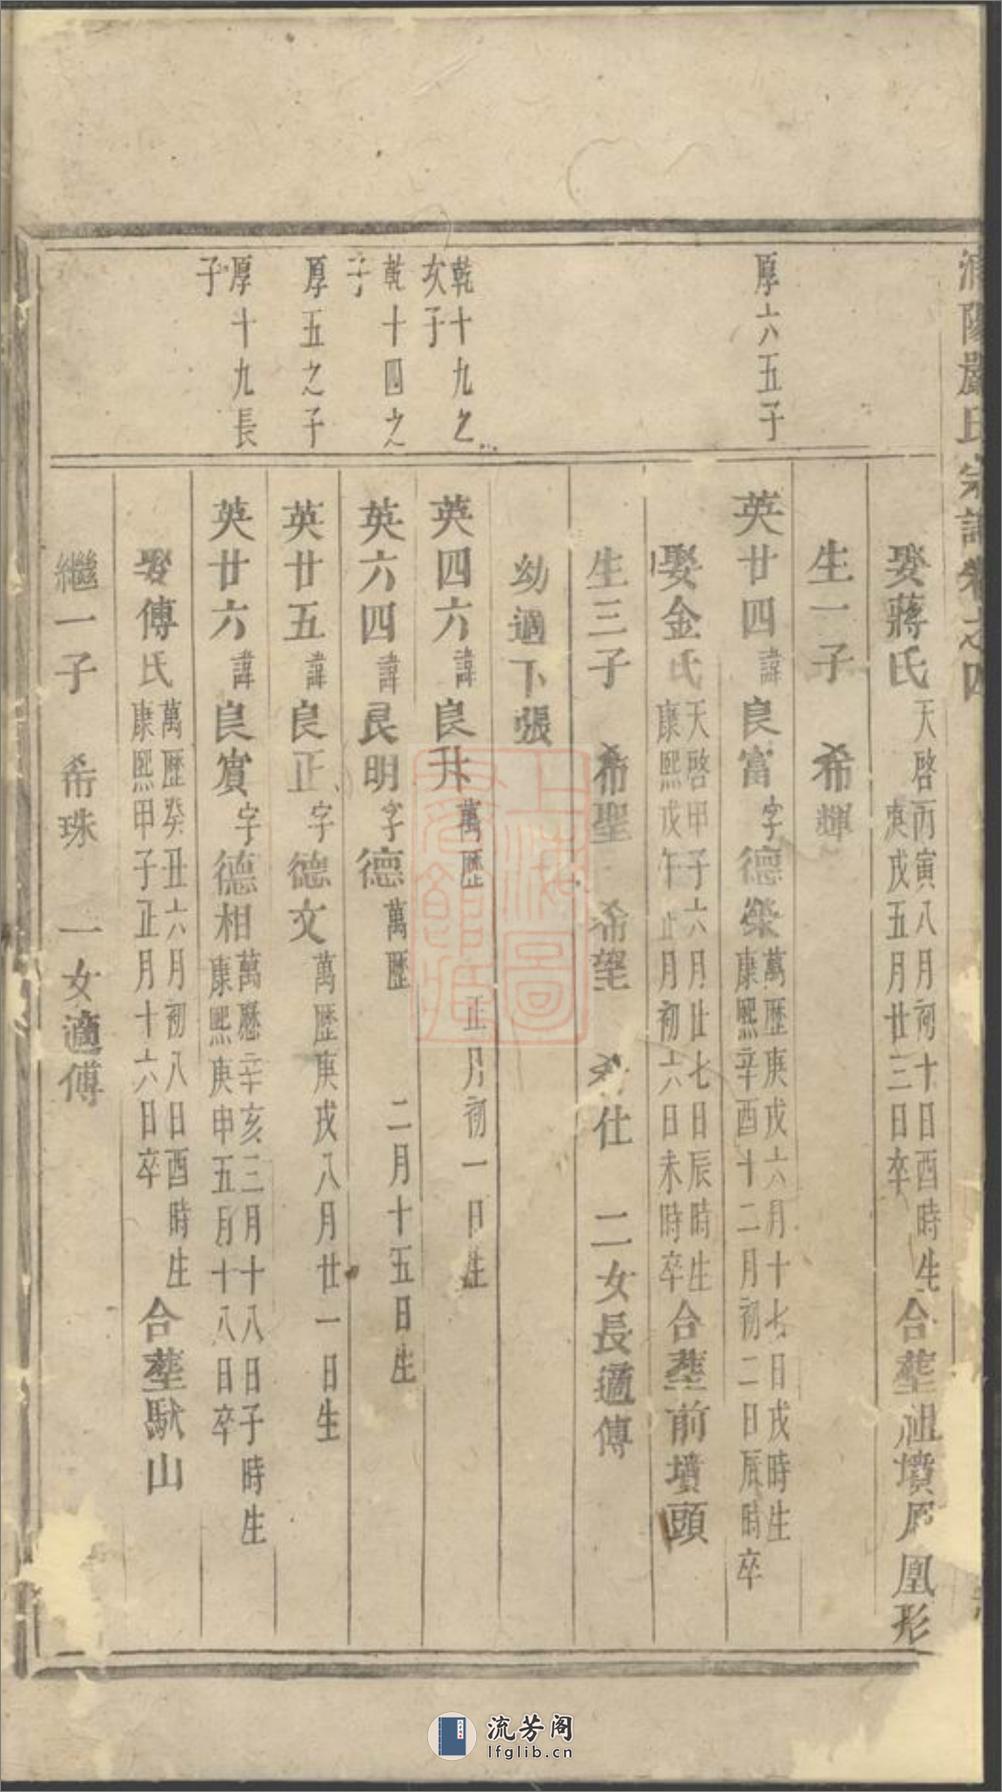 浦陽嚴氏宗譜卷之四
娶蔣氏 天啓丙寅八月初十日酉時生 庚戌五月廿三日卒 合塟祖墳凰形
生一子 希輝
厚六五子
英廿四 諱良富 字德榮 萬歷庚戌六月十七日戌時生 康熙辛酉十二月初二日辰時卒
娶金氏 天啓甲子六月廿七日辰時生 康熙戊午正月初六日未時卒 合塟前墳頭
生三子 希聖 希望 希仕 二女長適傅
幼適下張
乾十九之次子
英四六 諱良升 萬歷 正月初一日生
乾十四之子
英六四 諱良明 字德 萬歷 二月十五日生
厚五之子
英廿五 諱良正 字德文 萬歷庚戌八月廿一日生
厚十九長子
英廿六 諱良實 字德相 萬曆辛亥三月十八日子時生 康熙庚申五月十八日卒
娶傅氏 萬歷癸丑六月初八日酉時生 康熙甲子正月十六日卒 合塟馱山
繼一子 希珠 一女適傅
上海圖書館藏
流芳阁
lfglib.cn